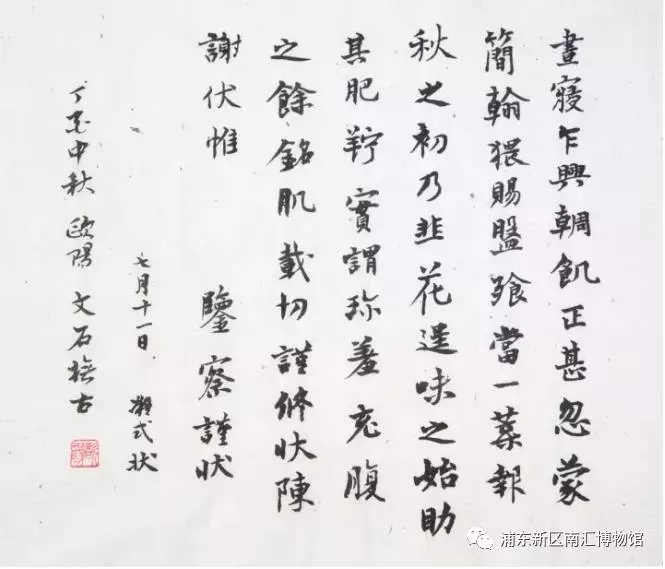 晝寢乍興輖飢正甚忽蒙
簡翰猥賜盤飧當一葉報
秋之初乃韭花逞味之始助
其肥羜實謂珍羞充腹
之餘銘肌載切謹修狀陳
謝伏惟 鑒察謹狀
七月十一日 凝式狀
丁亥中秋 歐陽文石撫古
浦东新区南汇博物馆